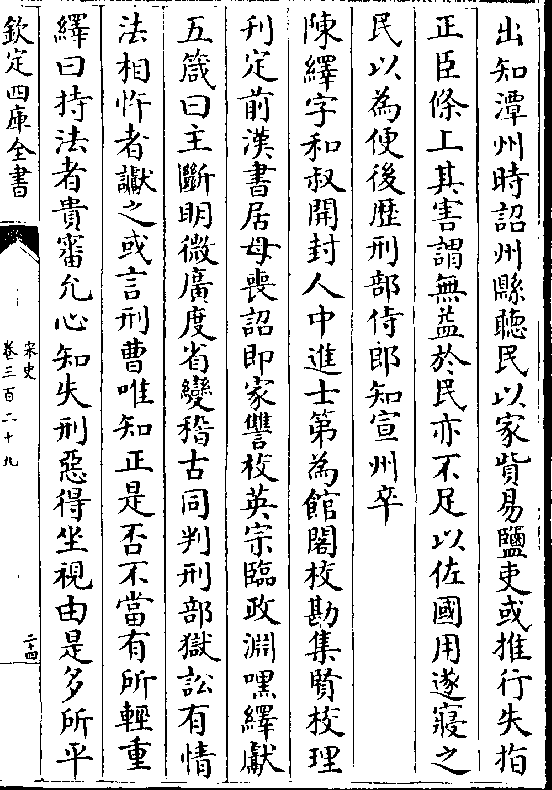 出知潭州時詔州縣聽民以家貲易鹽吏或推行失指
正臣條上其害謂無益於民亦不足以佐國用遂寢之
民以為便後歴刑部侍郎知宣州卒
陳繹字和叔開封人中進士第為館閣校勘集賢校理
刋定前漢書居母喪詔即家讐校英宗臨政淵嘿繹獻
五箴曰主斷明微廣度省變稽古同判刑部獄訟有情
法相忤者讞之或言刑曹唯知正是否不當有所輕重
繹曰持法者貴審允心知失刑惡得坐視由是多所平
欽定四庫全書
宋史
卷三百二十九
二十四